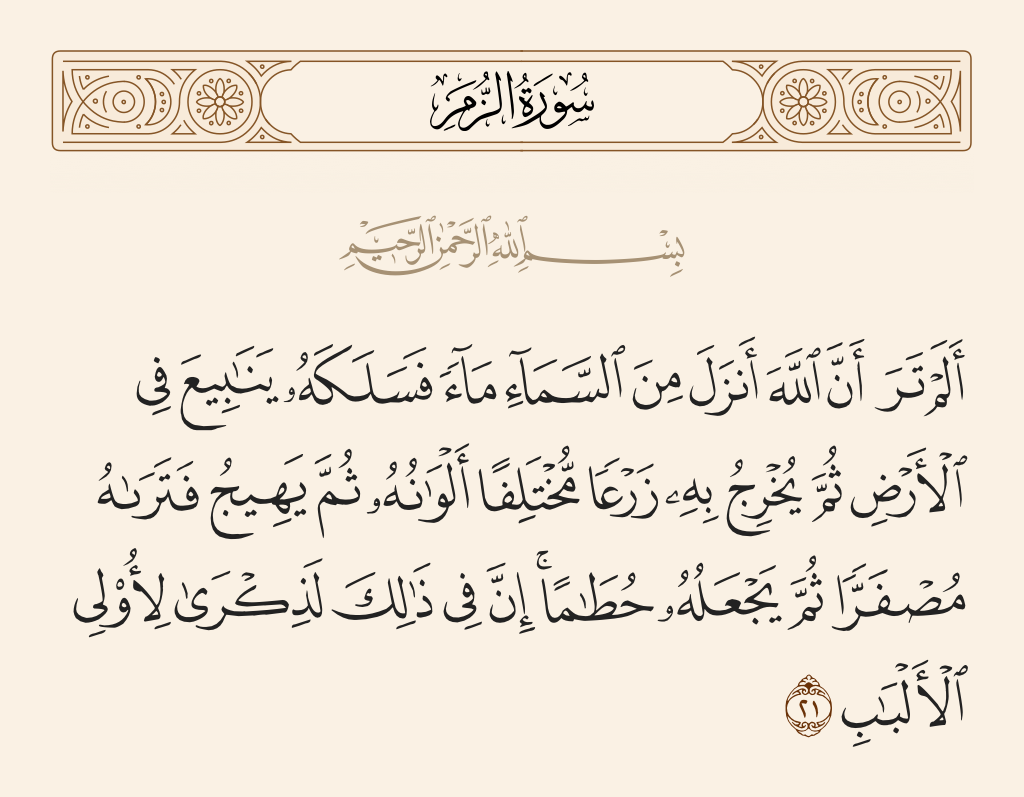 سُورَةُ الزُّمَرِ
بِسْمِ ٱللَّهِ ٱلرَّحْمَٰنِ ٱلرَّحِيمِ
أَلَمْ تَرَ أَنَّ ٱللَّهَ أَنزَلَ مِنَ ٱلسَّمَآءِ مَآءً فَسَلَكَهُۥ يَنَٰبِيعَ فِى
ٱلْأَرْضِ ثُمَّ يُخْرِجُ بِهِۦ زَرْعًا مُّخْتَلِفًا أَلْوَٰنُهُۥ ثُمَّ يَهِيجُ فَتَرَىٰهُ
مُصْفَرًّا ثُمَّ يَجْعَلُهُۥ حُطَٰمًا ۚ إِنَّ فِى ذَٰلِكَ لَذِكْرَىٰ لِأُو۟لِى
ٱلْأَلْبَٰبِ ٢١